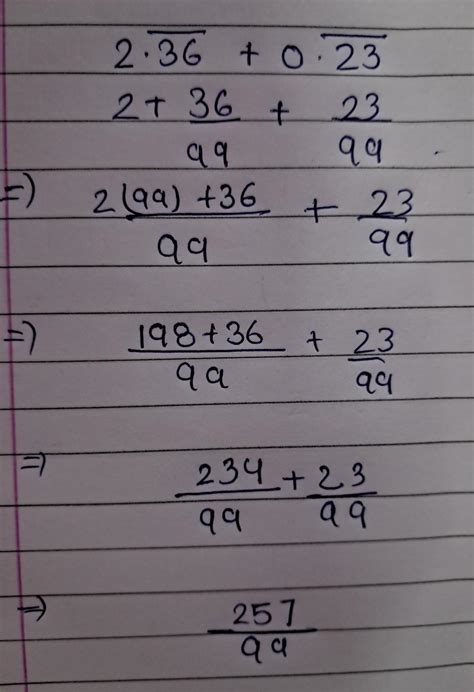 2.\overline{36} + 0.\overline{23}
2 + 36/99 + 23/99
=) 2(99) + 36/99 + 23/99
=) 198 + 36/99 + 23/99
=) 234/99 + 23/99
=) 257/99